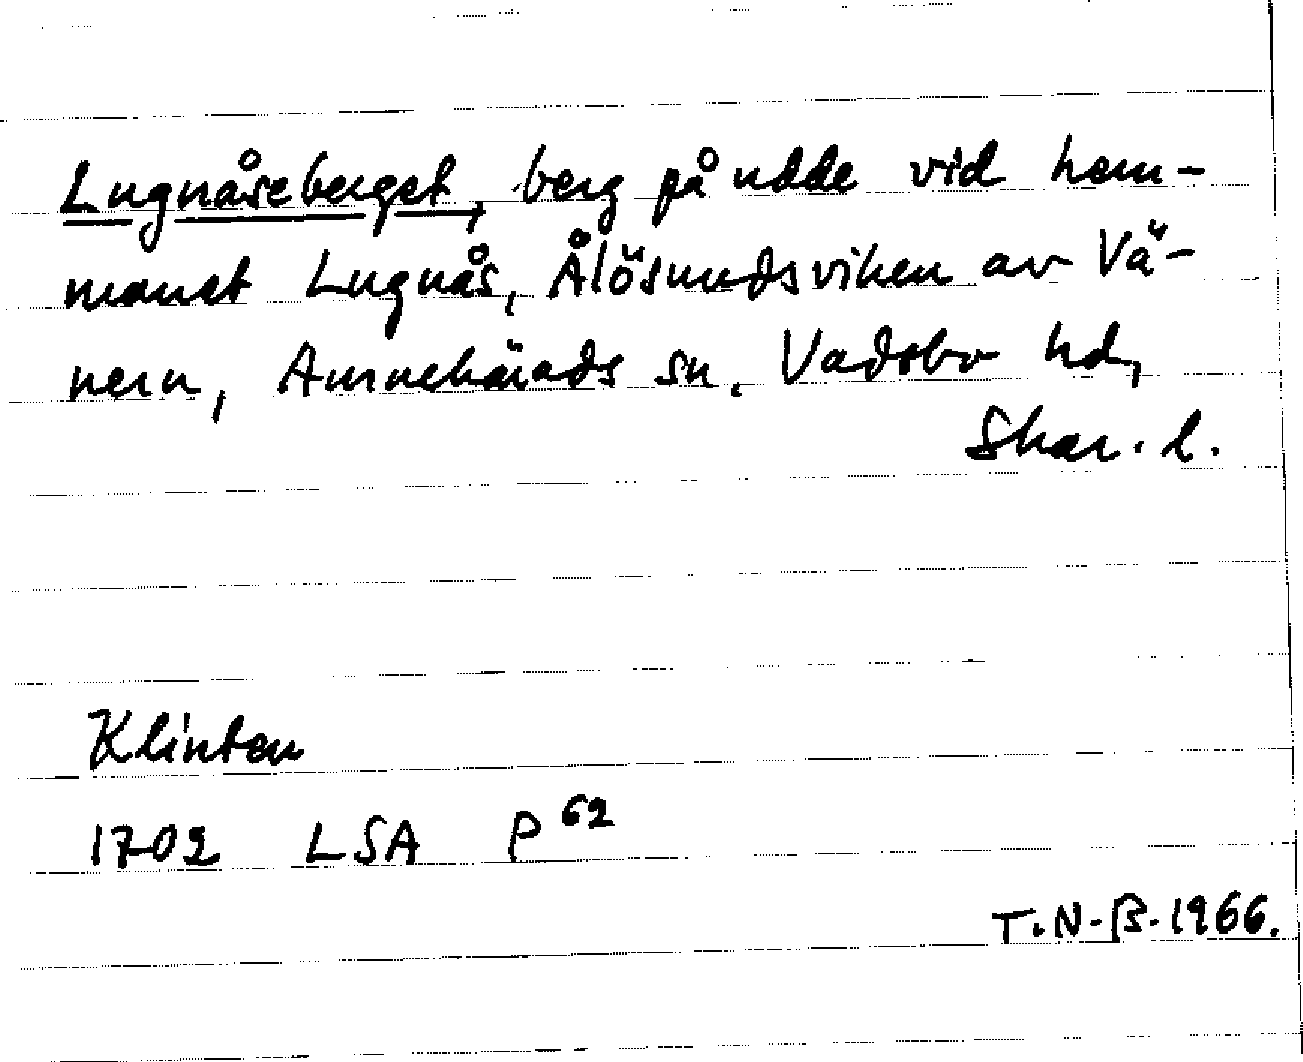 Lugnåseberget, berg på udde vid hem-
manet Lugnås, Ålösundsviken av Vä-
nern, Amnehärads sn, Vadsbo hd,
Skar. l.
Klinten
1702 LSA P 62
T.N-B. 1966.